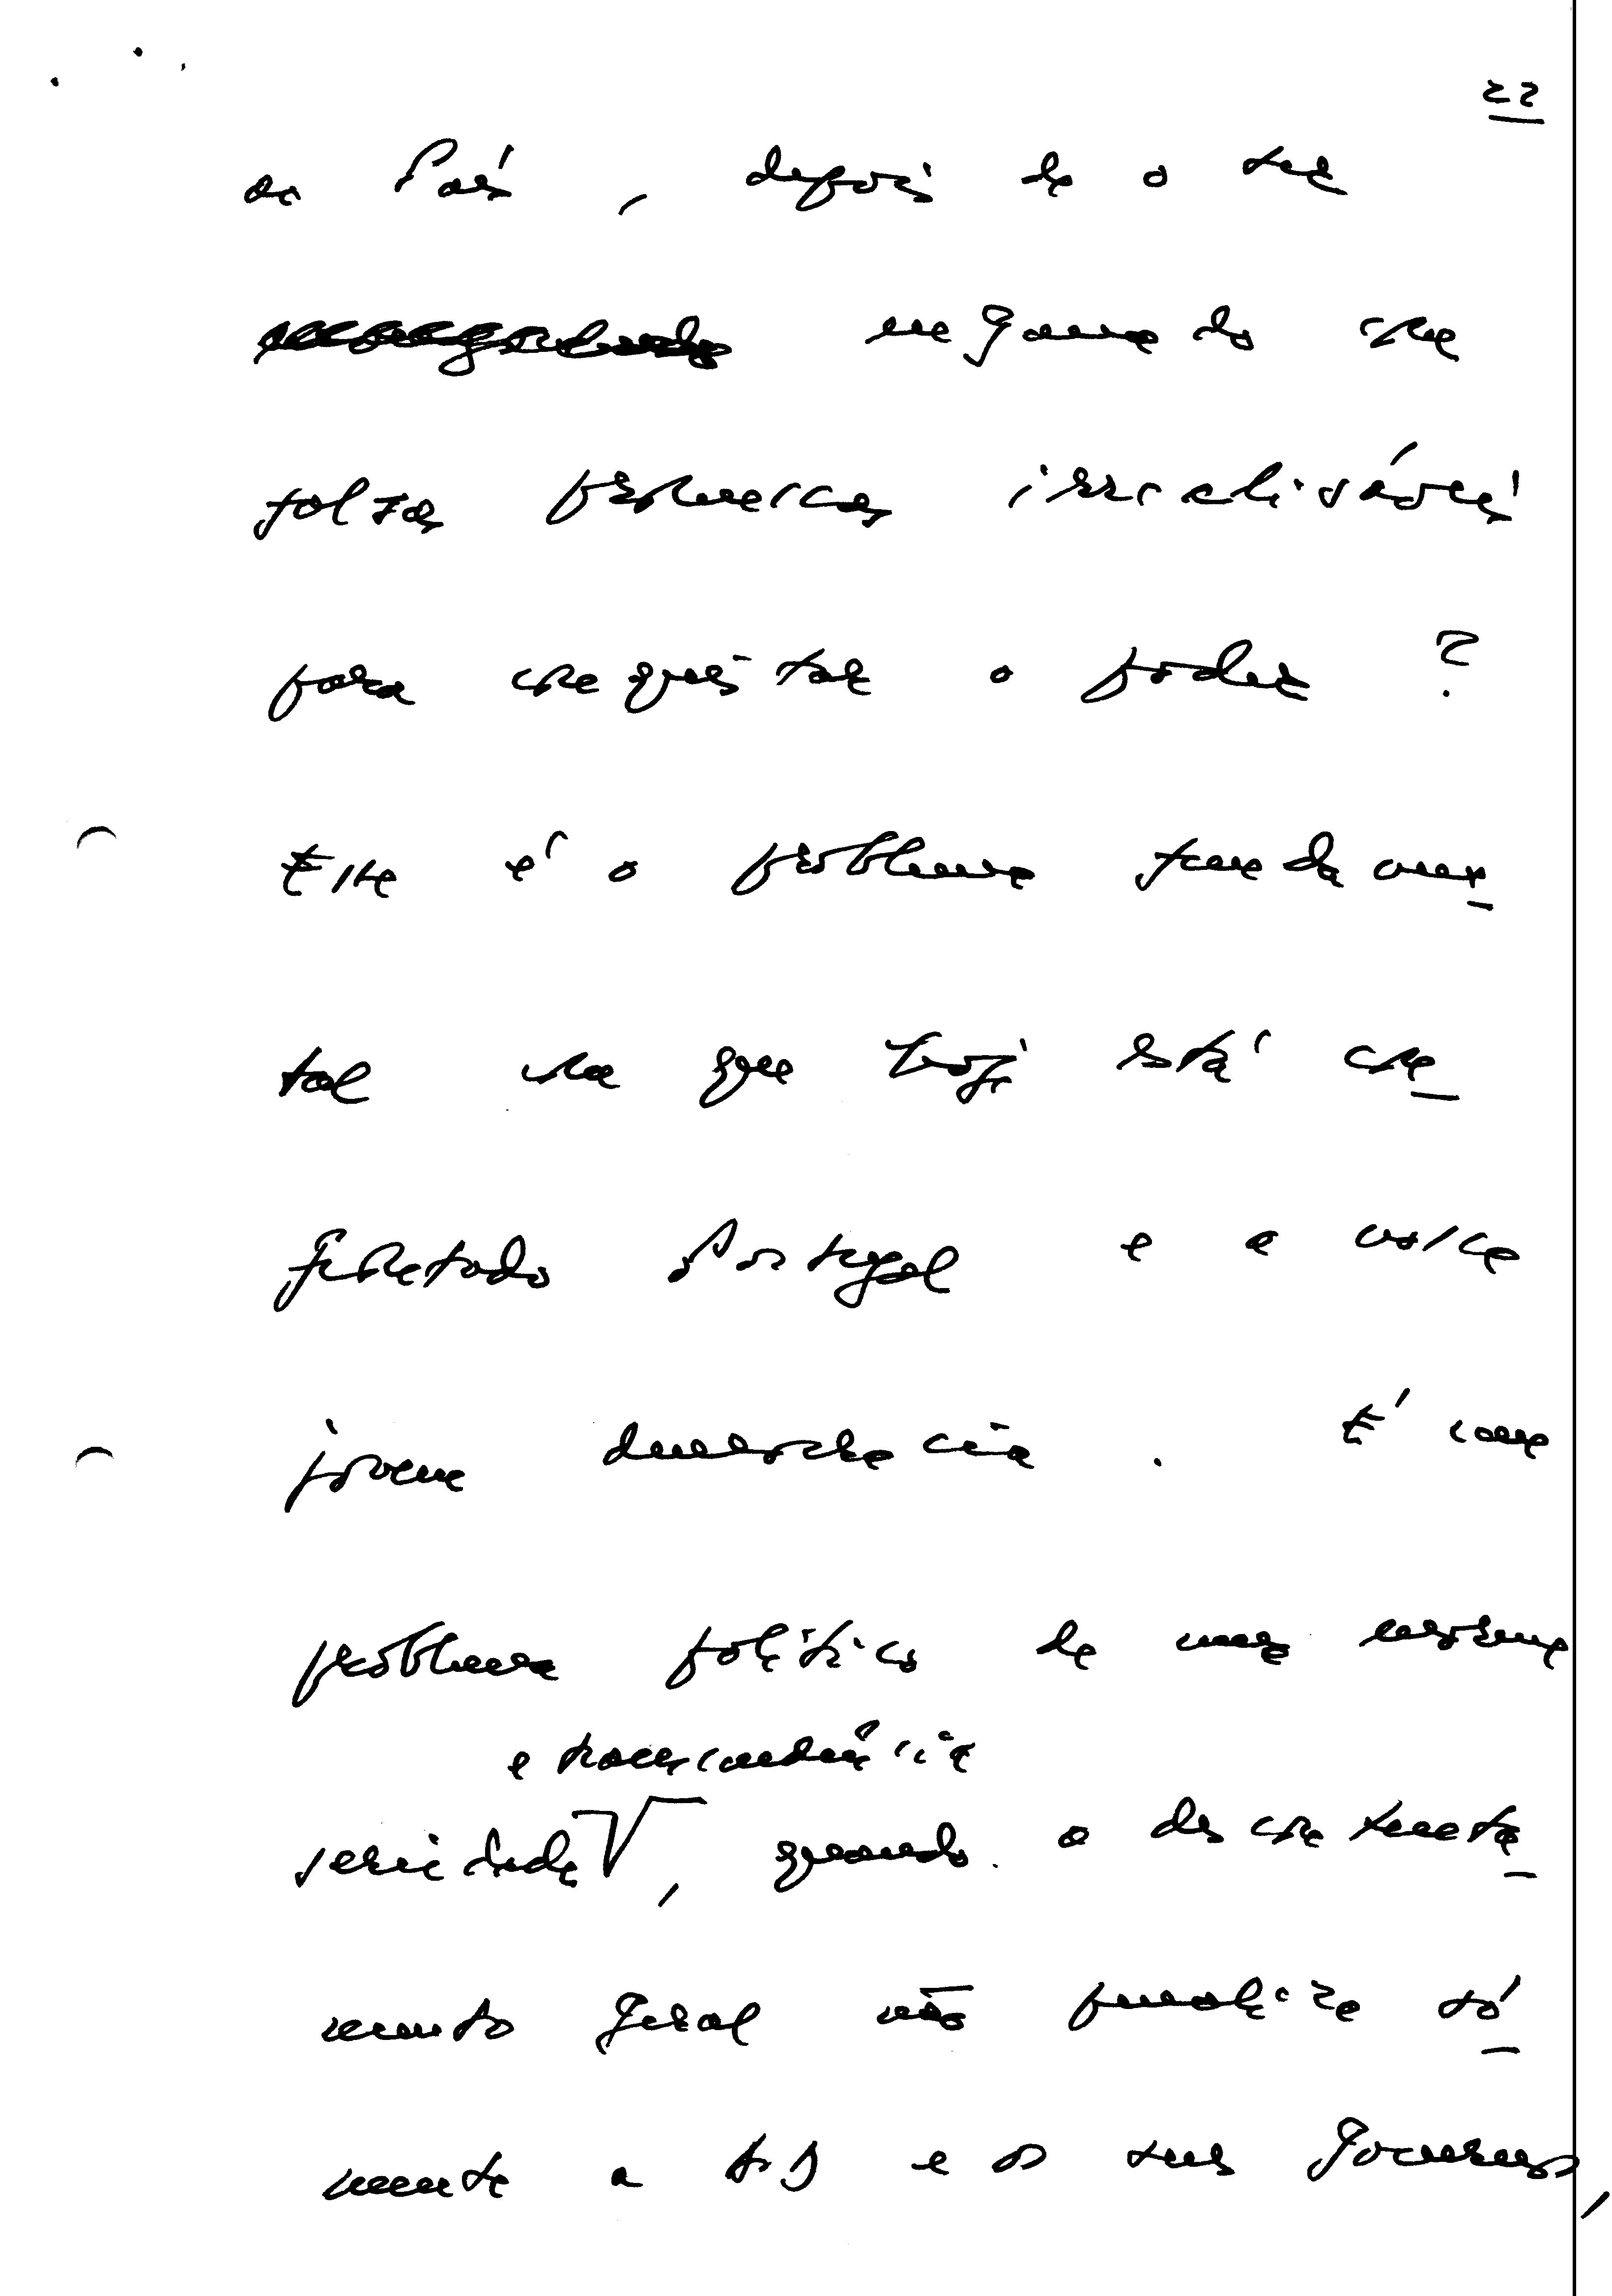 22
ao País, depois de o ter
enganado com
falsas promessas irrealizáveis
para conquistar o poder?
Este é o problema fundamen
tal com que hoje está con
frontado Portugal e a nossa
jovem democracia. É um
problema político de uma enorme
e transcendência
seriedade, quando o descontenta
mento geral não penaliza só
mente a AD e os seus Governos,